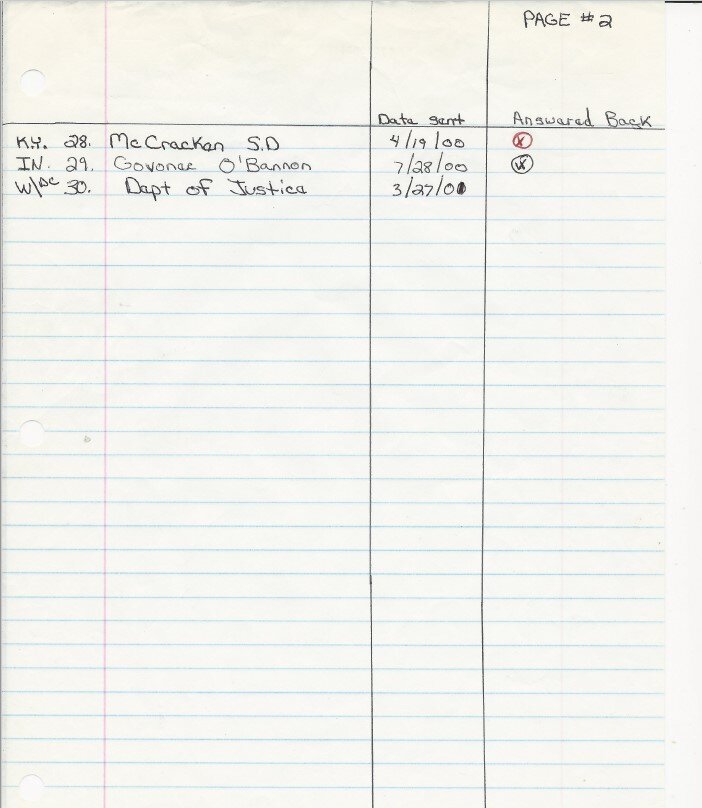 PAGE #2
Date sent Answered Back
K.Y. 28. McCracken S.D 4/19/00
IN. 29. Govoner O'Bannon 7/28/00
W/DC 30. Dept of Justice 3/27/01